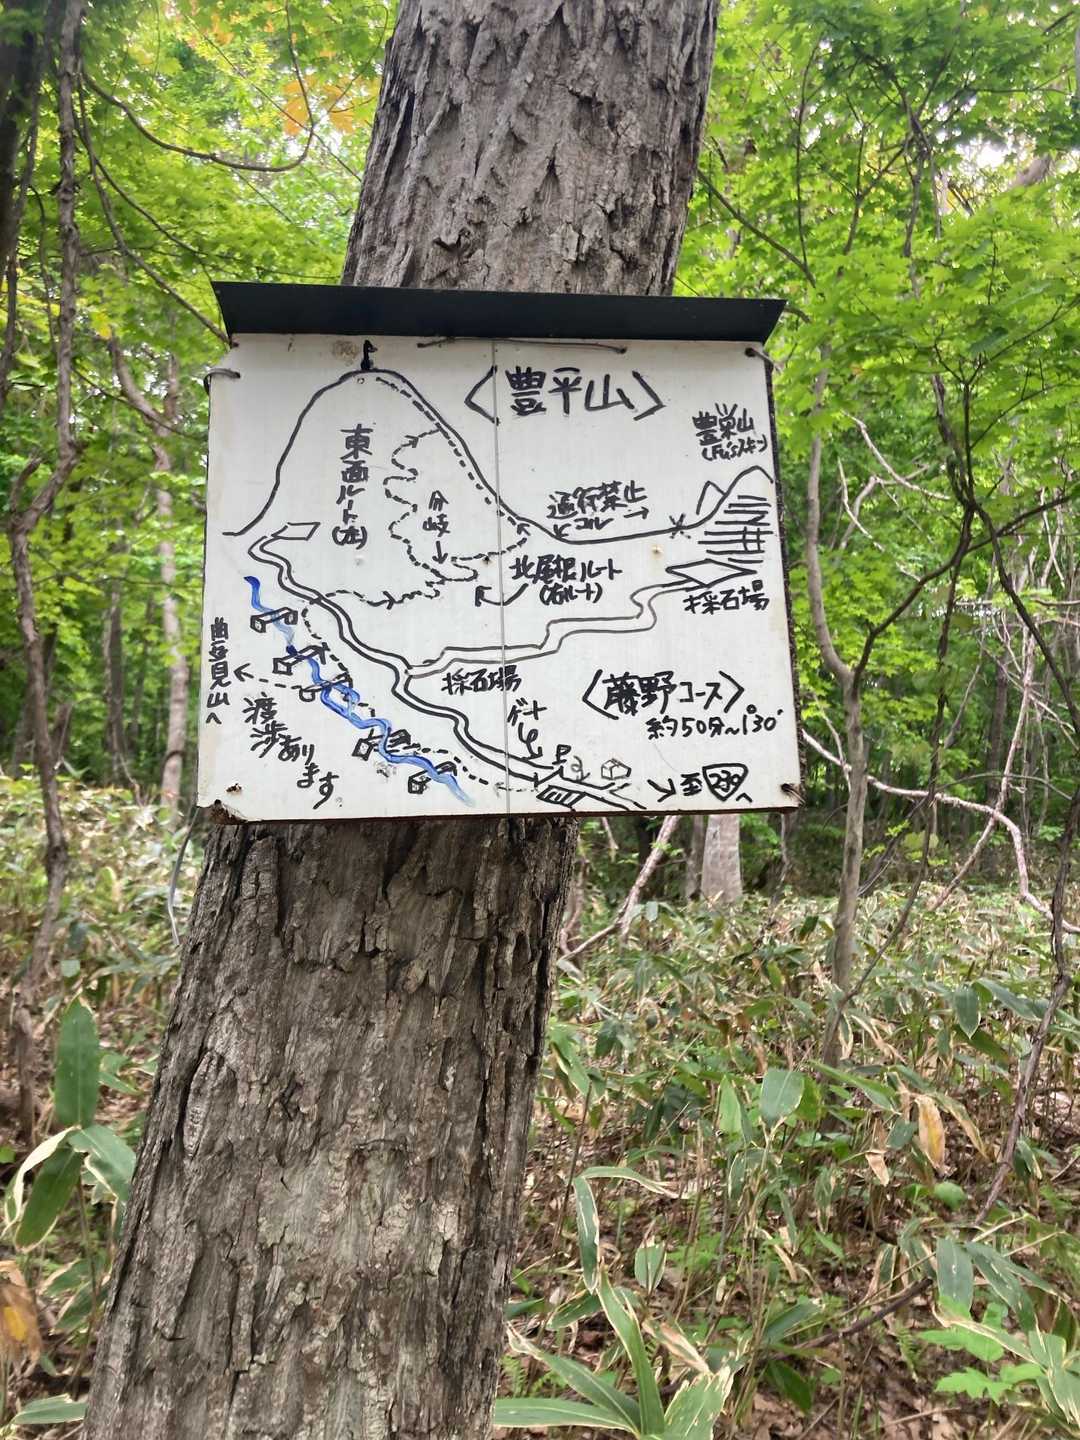 〈豊平山〉
豊栄山
(Fu'sスキー)
東面ルート
(左)
分岐
通行禁止
コル
北尾根ルート
(右ルート)
採石場
採石場
曲空見山へ
渡渉あります
〈藤野コース〉
約50分~1°30'
ゲート
P
至 239 へ